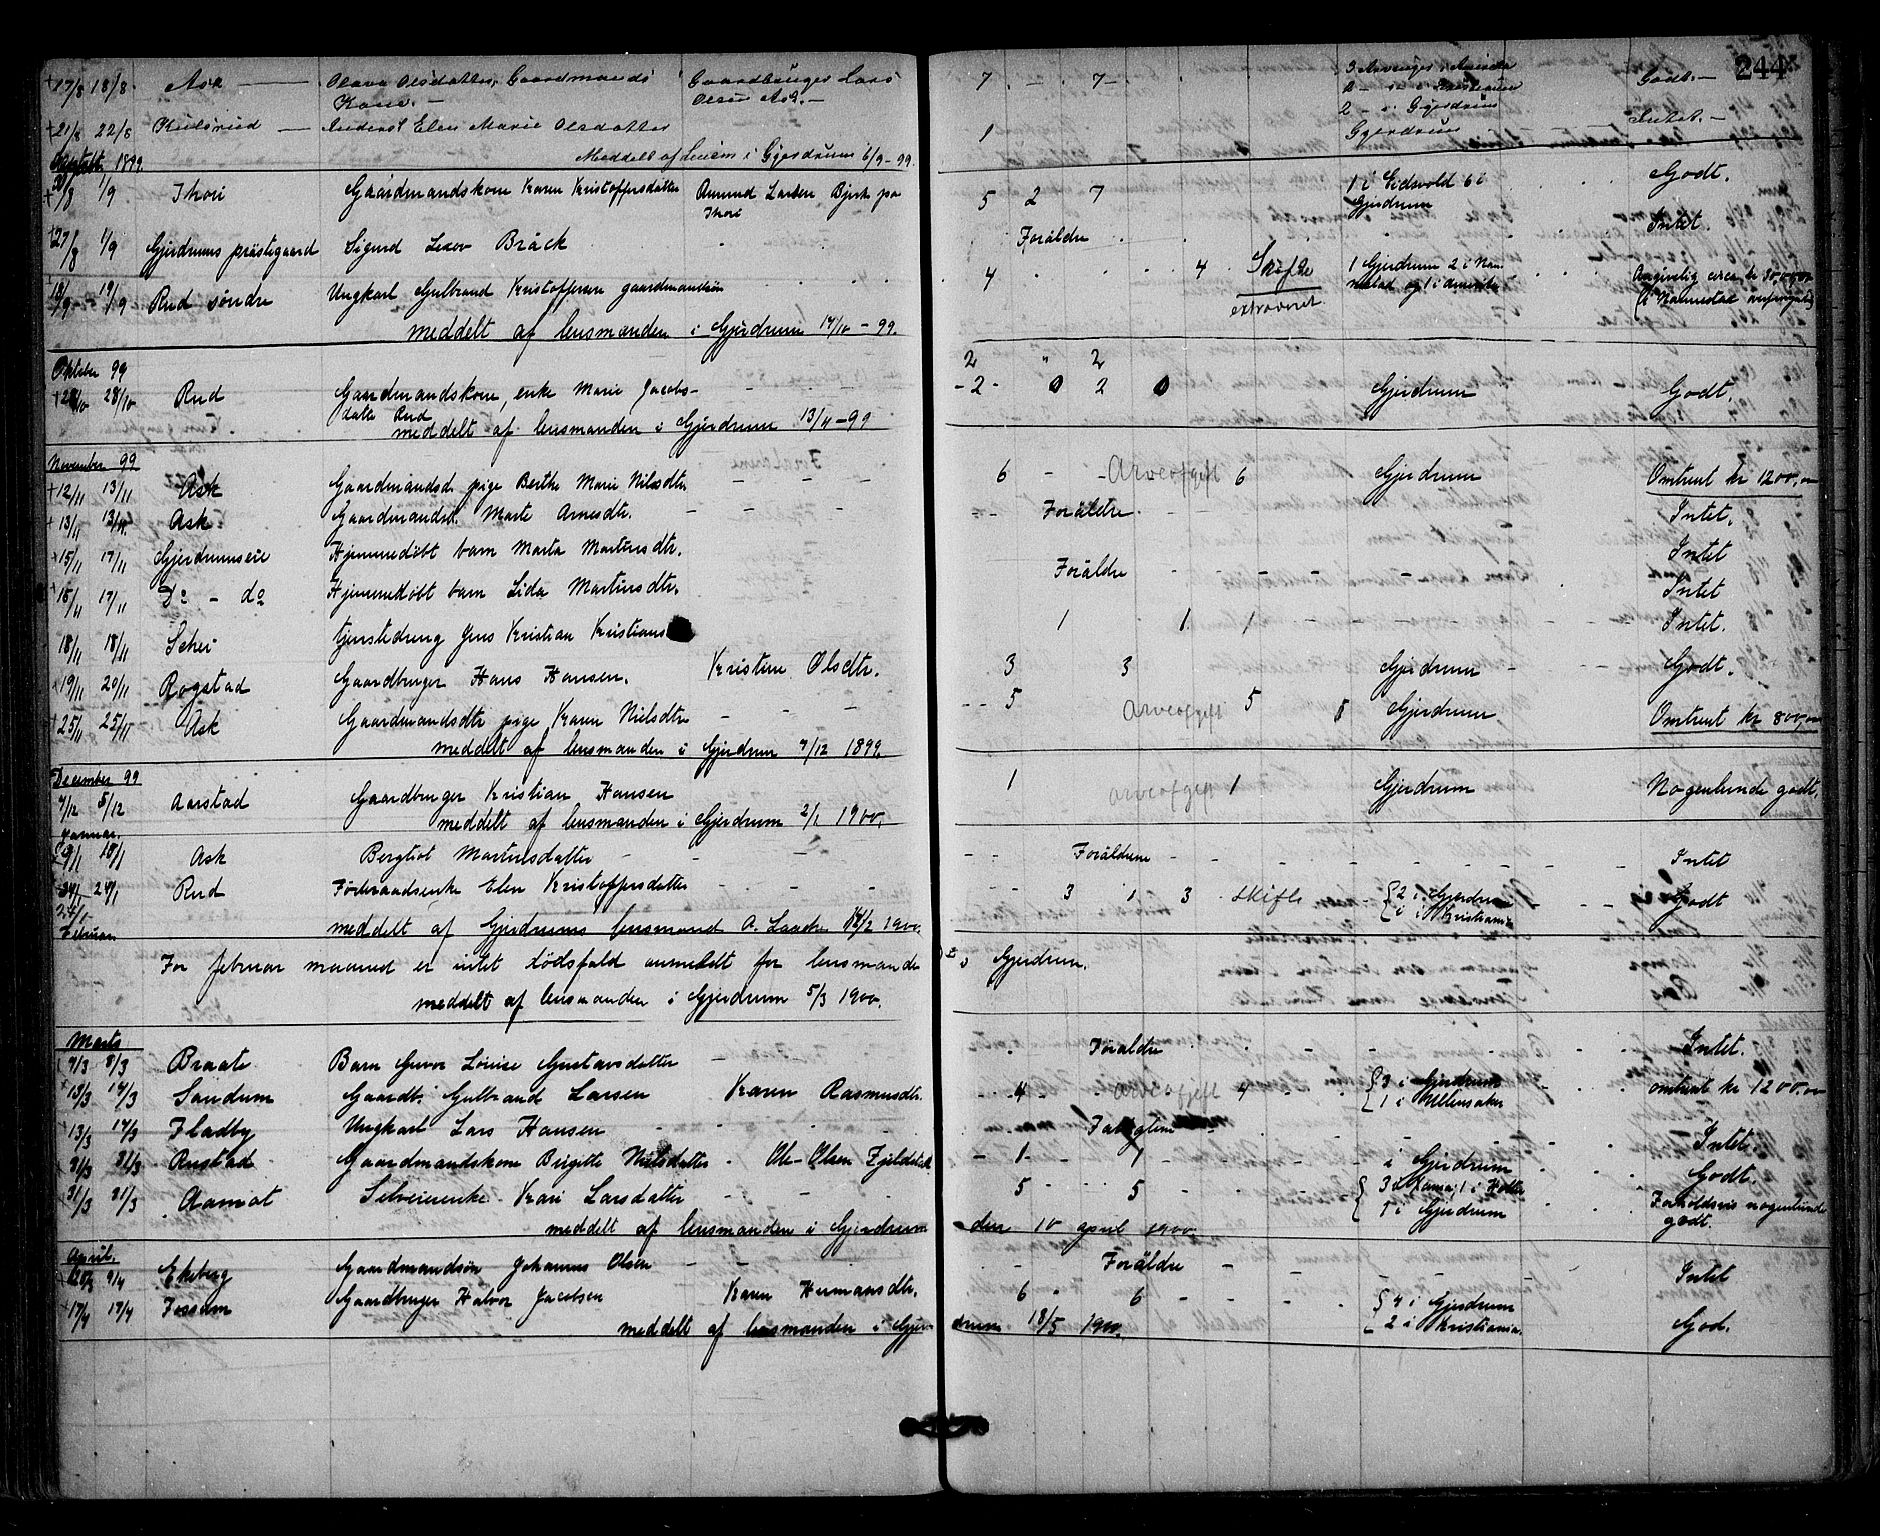 244
+17/8 18/8 Ask — Olava Olsdatter, Gaardmands Gaardbruger Lars 7 - - 7 - 3 Arvinger i Amerika Godt. -
Kone. - Olsen Ask. - 2 - i Kristiania
2 - i Gjerdrum
+21/8 22/8 Kulsrud — Inderst Elen Marie Olsdatter 1 Gjerdrum Intet. -
1899. Meddelt af Lensm i Gjerdrum 6/9 - 99.
+30/8 1/9 Thori Gaardmandskone Karen Kristoffersdatter Amund Larsen Bjerk pa 5 2 7 1 i Eidsvold 6 i Godt.
Thori Gjerdrum
+27/8 1/9 Gjerdrums præstegaard Sigurd Bräck Foräldre Intet.
18/9 19/9 Rud söndre Ungkarl Gulbrand Kristoffersen gaardmandsön 4 4 Skifte 1 Gjerdrum 2 i Nan- Angivelig circa kr 30,000,00
extraderet nestad og 1 i Amerika (i Nannestad
meddelt af lensmanden i Gjerdrum 14/10 - 99.
Oktober 99 2 " 2
+ 28/10 Rud Gaardmandskone, enke Marie Jacobs- - 2 - 0 2 0 Gjerdrum Godt.
datter Rud
meddelt af lensmanden i Gjerdrum 13/11 - 99
November 99
+12/11 13/11 Ask Gaardmandsd pige Berthe Marie Nilsdtr - - - 6 - - Arveafgift 6 Gjerdrum Omtrent kr 1200,00
+13/11 13/11 Ask Gaardmandsd. Marte Arnesdtr. - - - Foräldre. Intet.
+15/11 17/11 Gjerdrumseie Hjemmedöbt barn Marta Martinsdtr. Intet
+15/11 17/11 Do - do Hjemmedöbt barn Lida Martinsdtr. Foräldre - - - - Intet
18/11 18/11 Schei tjenstedreng Jens Kristian Kristians 1 1 1 - - - Intet.
+19/11 20/11 Rogstad Gaardbruger Hans Hansen. Kristine Olsdtr. 3 3 Gjerdrum - - - Godt.
+25/11 25/11 Ask Gaardmandsdtr pige Karen Nilsdtr - - - - - 5 Arveafgift 5 Gjerdrum Omtrent kr 800,00
meddelt af lensmanden i Gjerdrum 4/12 1899.
December 99
4/12 5/12 Aarstad Gaardbruger Kristian Hansen 1 arveafgift 1 Gjerdrum Nogenlunde godt.
meddelt af lensmanden i Gjerdrum 2/1 1900.
Januar.
9/1 18/1 Ask Bergliot Martinsdatter - - - - - Foräldrene - - - Intet
24/1 24/1 Rud Föderaadsenke Elen Kristoffersdatter - - - - - 3 1 3 Skifte { 2 i Gjerdrum Godt
1 i Kristiania
Februar meddelt af Gjerdrums lensmand A. Laache /2 1900.
For februar maaned er intet dödsfald anmeldt for lensmanden i Gjerdrum.
meddelt af lensmanden i Gjerdrum 5/3 1900.
Marts
4/3 8/3 Braate Barn Guvor Louise Gustavsdatter - Foräldre Intet.
13/3 14/3 Sandum Gaardb. Gulbrand Larsen Karen Rasmusdtr. - - 4 - arveafgift 4 { 3 i Gjerdrum omtrent kr 1200,00
1 i Ullensaker
+13/3 17/3 Fladby Ungkarl Lars Hansen - - Intet.
31/3 31/3 Rustad Gaardmandskone Birgitte Nielsdatter - Ole Olsen Fjeldstad - 1 - 1 - - i Gjerdrum Godt.
31/3 31/3 Aamot Selveierenke Kari Larsdatter 5 5 Forholdsvis nogenlunde
1 i Gjerdrum godt.
meddelt af lensmanden i Gjerdrum den 10 april 1900.
April.
9/4 Ekeberg Gaardmandsön Johannes Olsen - - Foräldre - - Intet
+17/4 17/4 Fossum Gaardbruger Halvor Jacobsen Karen Hermansdtr. 6 6 - - - { 4 i Gjerdrum God.
2 i Kristiania.
meddelt af lensmanden i Gjerdrum 18/5 1900.